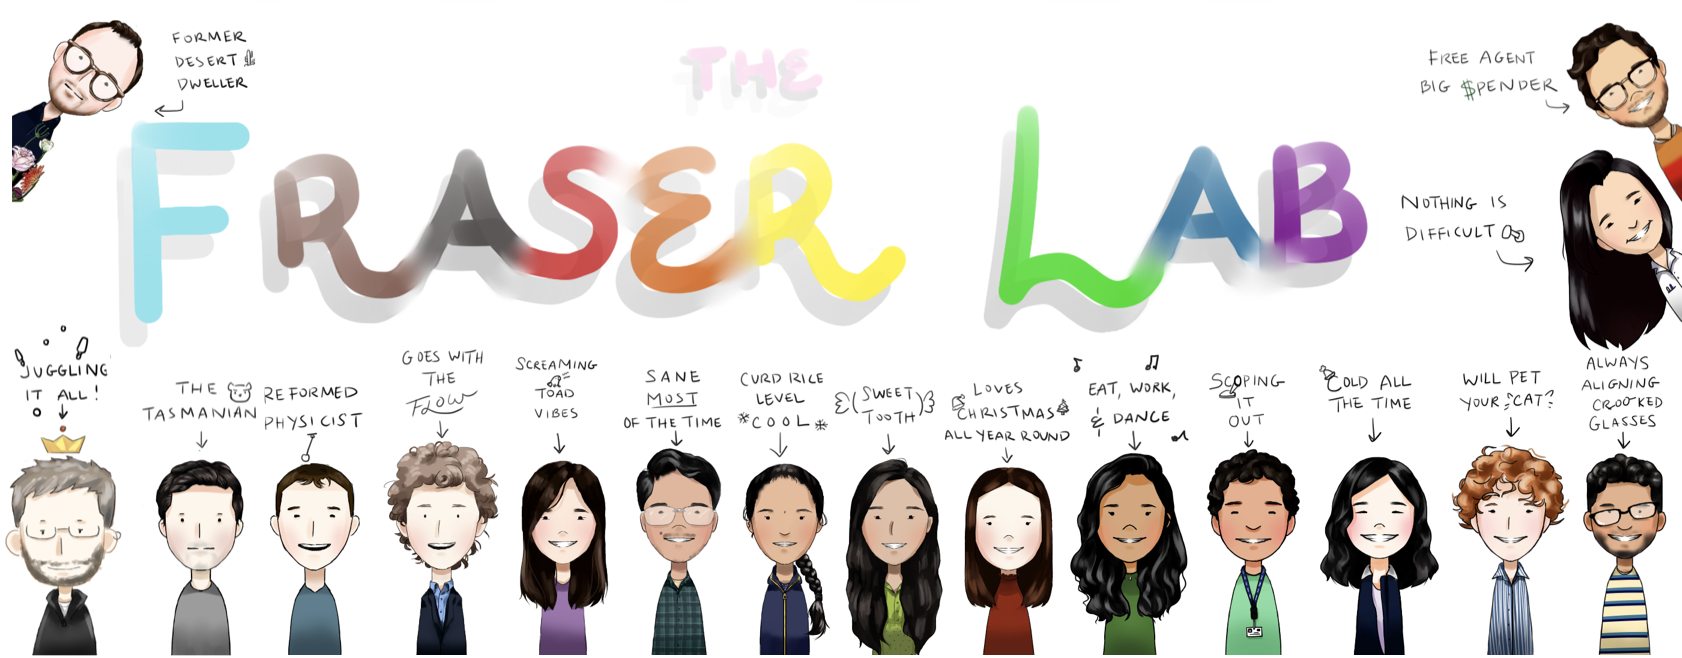 FORMER
DESERT
DWELLER
THE
FRASER LAB
FREE AGENT
BIG $PENDER
NOTHING IS
DIFFICULT
JUGGLING
IT ALL!
THE
TASMANIAN
REFORMED
PHYSICIST
GOES WITH
THE
FLOW
SCREAMING
TOAD
VIBES
SANE
MOST
OF THE TIME
CURD RICE
LEVEL
*COOL*
(SWEET
TOOTH)
LOVES
CHRISTMAS
ALL YEAR ROUND
EAT, WORK,
& DANCE
SCOPING
IT
OUT
COLD ALL
THE TIME
WILL PET
YOUR CAT?
ALWAYS
ALIGNING
CROOKED
GLASSES